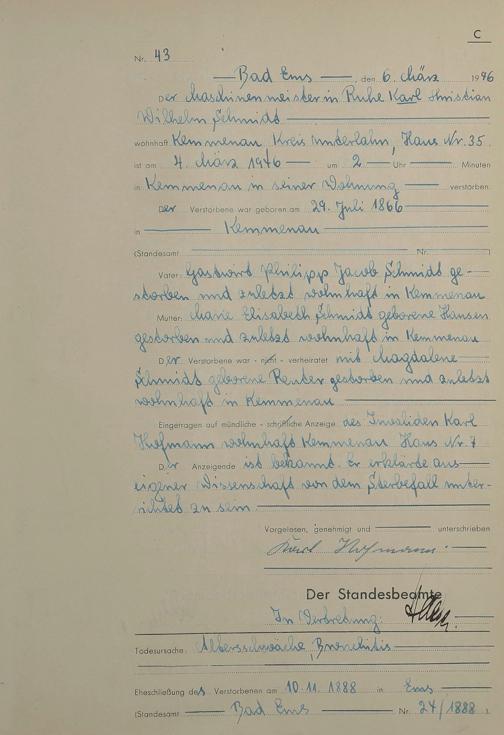 C
Nr. 43
Bad Ems, den 6. März 1946
Der Maschinenmeister in Ruhe Karl Christian
Wilhelm Schmidt
wohnhaft Kemmenau, Kreis Unterlahn, Haus Nr. 35
ist am 4. März 1946 um 2 Uhr Minuten
in Kemmenau in seiner Wohnung verstorben.
Der Verstorbene war geboren am 29. Juli 1866
in Kemmenau
(Standesamt Nr. )
Vater: Gastwirt Philipp Jacob Schmidt ge-
storben und zuletzt wohnhaft in Kemmenau
Mutter: Marie Elisabeth Schmidt geborene Hansen
gestorben und zuletzt wohnhaft in Kemmenau
Der Verstorbene war - nicht - verheiratet mit Magdalene
Schmidt geborene gestorben und zuletzt
wohnhaft in Kemmenau
Eingetragen auf mündliche - schriftliche Anzeige des Invaliden Karl
Hofmann wohnhaft Kemmenau Haus Nr. 7
Der Anzeigende ist bekannt. Er erklärte aus
eigener Wissenschaft von dem Sterbefall unter-
richtet zu sein.
Vorgelesen, genehmigt und unterschrieben
Karl Hofmann
Der Standesbeamte
In Vertretung:
Todesursache: Altersschwäche, Bronchitis
Eheschließung des Verstorbenen am 10.11.1888 in Ems
(Standesamt Bad Ems Nr. 24/1888 )